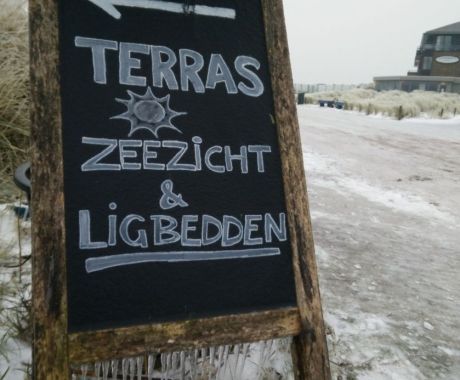 TERRAS
ZEEZICHT
&
LIGBEDDEN